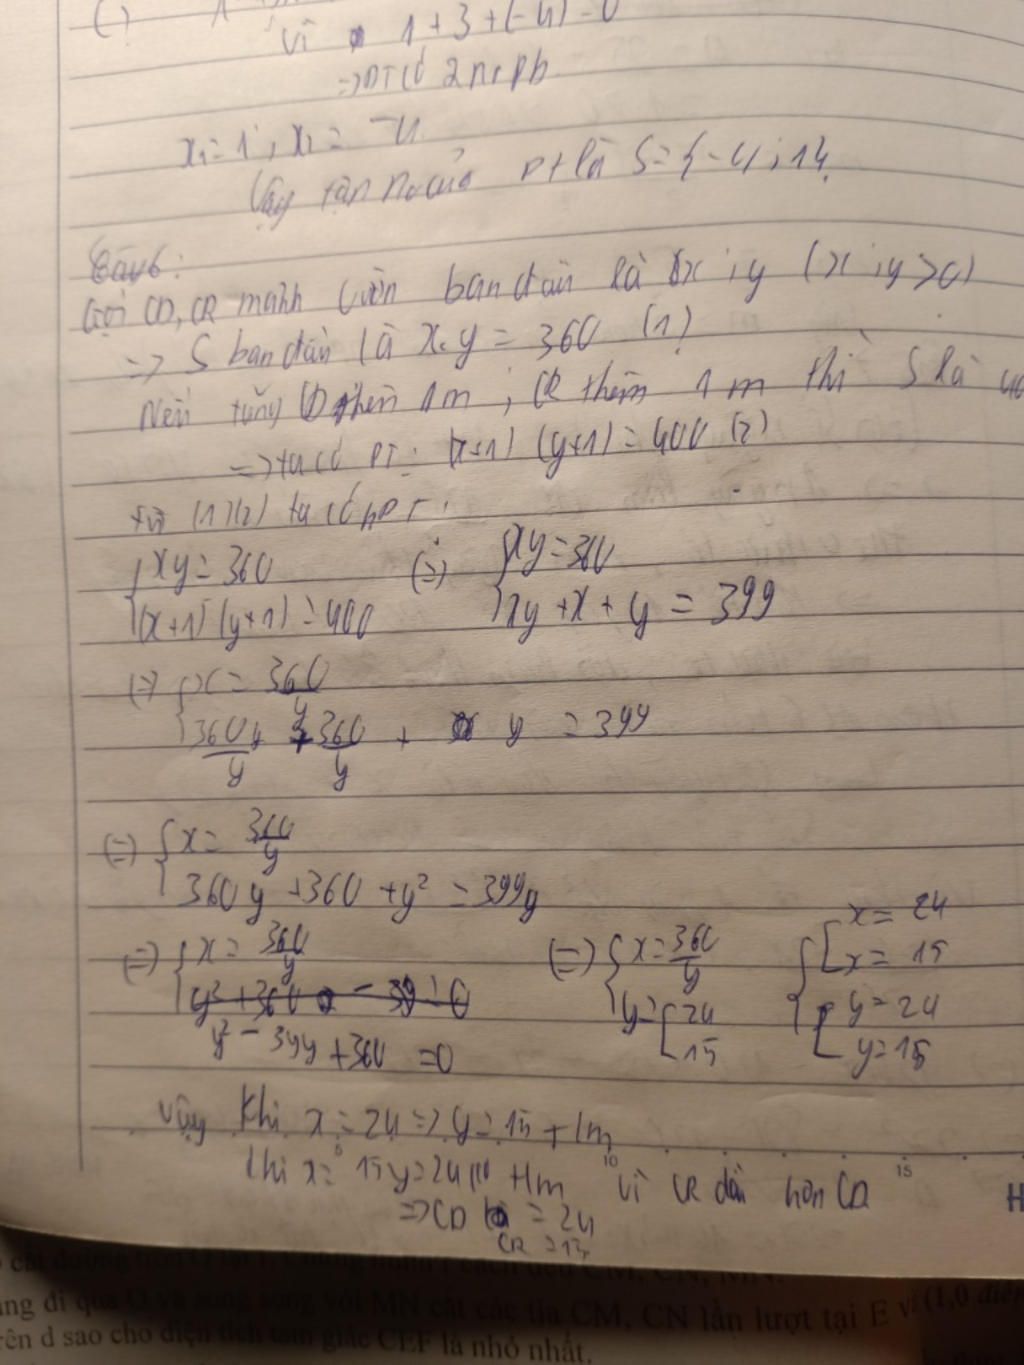 c)
vì 1+3+(-4)=0
=> PT có 2 n₀ pb
x₁=1; x₂= -4
Vậy tập n₀ của pt là S={-4;1}.
Câu 6:
Gọi CD, CR mảnh vườn ban đầu là x; y (x;y>0)
=> S ban đầu là x.y = 360 (1)
Nếu tăng CD thêm 1m, CR thêm 1m thì S là
=> ta có PT: (x+1)(y+1)=400 (2)
từ (1)(2) ta có hPT:
{xy=360 (=) {xy=360
{(x+1)(y+1)=400 {xy+x+y=399
(=) {x=360/y
{360y/y + 360/y + y = 399
(=) {x=360/y
{360y+360+y²=399y
(=) {x=360/y (=) {x=360/y {[x=24
[x=15
y²+360 - 39=0 {y=[24 {[y=24
y²-39y+360=0 [15 [y=15
Vậy khi x=24=>y=15 tm
khi x=15 y=24 tm vì CR dài hơn CD
=> CD là = 24
CR = 15
cách đều CM, CN, MN.
đi qua O và song song với MN cắt các tia CM, CN lần lượt tại E và
trên d sao cho diện tích tam giác CEF là nhỏ nhất.
(1,0 điểm